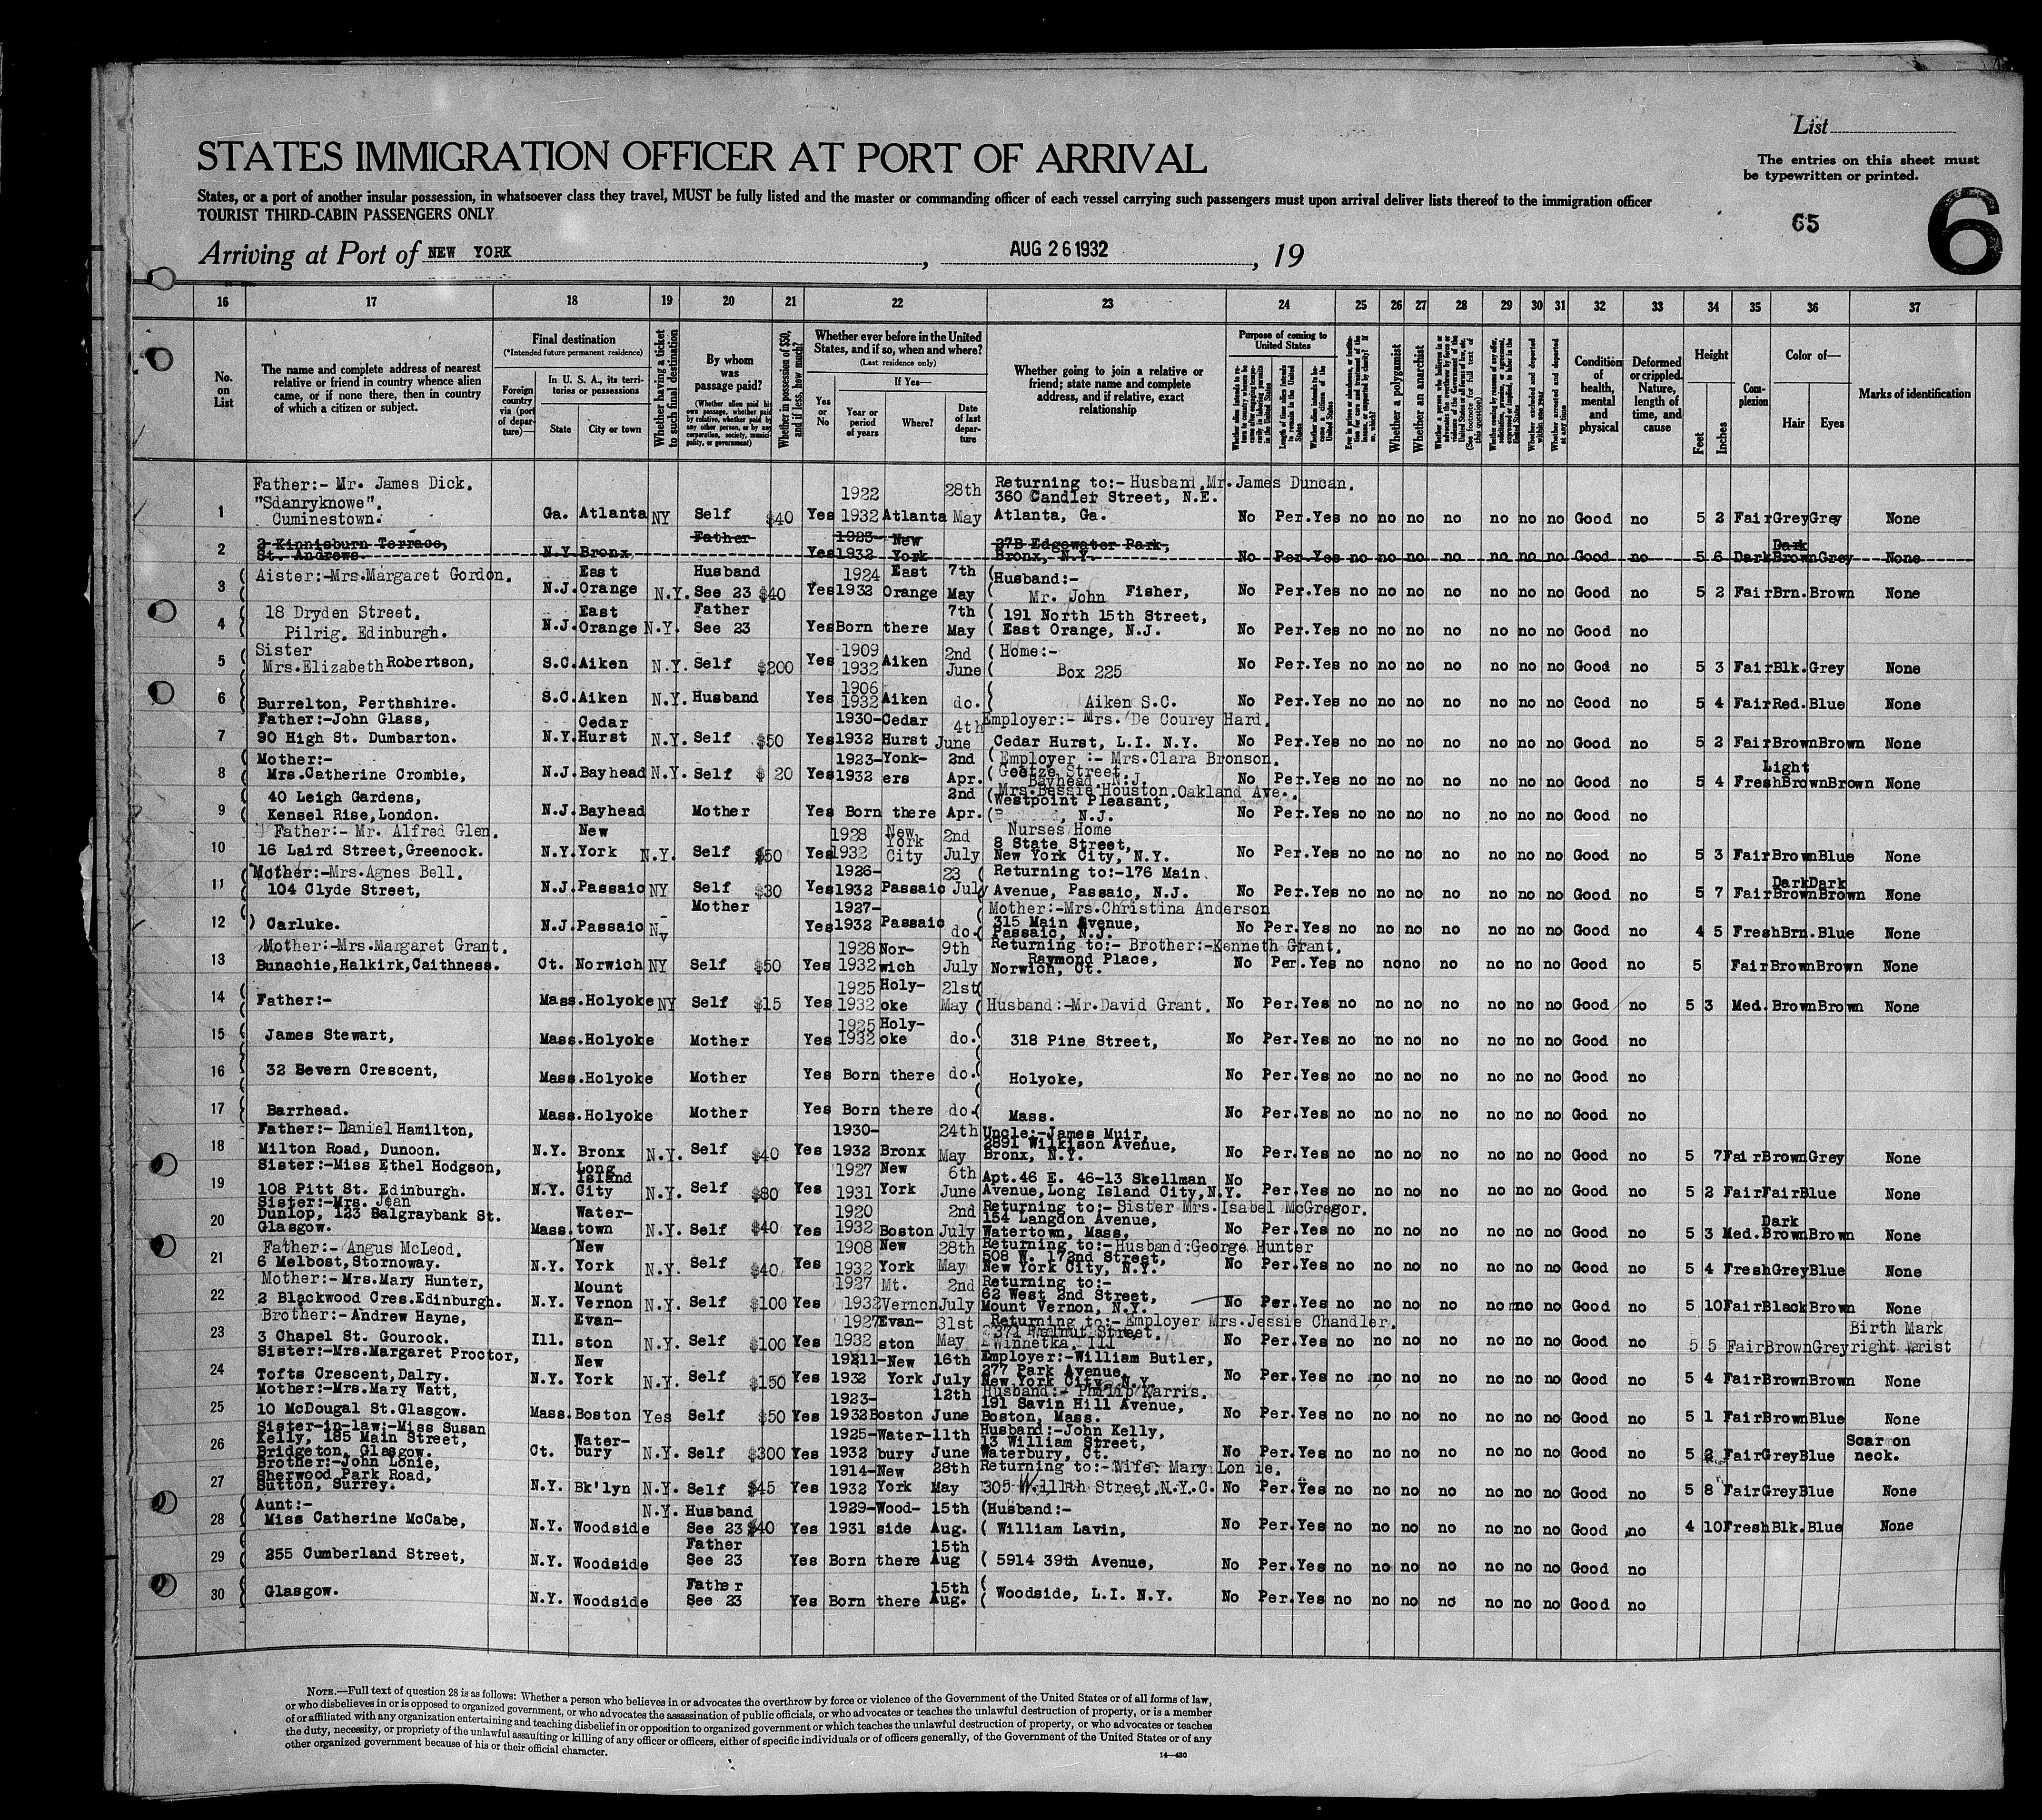 List
STATES IMMIGRATION OFFICER AT PORT OF ARRIVAL
The entries on this sheet must
be typewritten or printed.
States, or a port of another insular possession, in whatsoever class they travel, MUST be fully listed and the master or commanding officer of each vessel carrying such passengers must upon arrival deliver lists thereof to the immigration officer
TOURIST THIRD-CABIN PASSENGERS ONLY
65
6
Arriving at Port of NEW YORK, AUG 26 1932, 19
16 17 18 19 20 21 22 23 24 25 26 27 28 29 30 31 32 33 34 35 36 37
No. on List
The name and complete address of nearest relative or friend in country whence alien came, or if none there, then in country of which a citizen or subject.
Final destination
(*Intended future permanent residence)
Foreign country via (port of departure)—
In U. S. A., its territories or possessions
State
City or town
Whether having a ticket to such final destination
By whom was passage paid?
(Whether alien paid his own passage, whether paid by relative, whether paid by any other person, or by any corporation, society, municipality, or government)
Whether in possession of $50, and if less, how much?
Whether ever before in the United States, and if so, when and where?
(Last residence only)
Yes or No
If Yes—
Year or period of years
Where?
Date of last departure
Whether going to join a relative or friend; state name and complete address, and if relative, exact relationship
Purpose of coming to United States
Whether a polygamist
Whether an anarchist
Condition of health, mental and physical
Deformed or crippled. Nature, length of time, and cause
Height
Feet
Inches
Complexion
Color of—
Hair
Eyes
Marks of identification
1 Father:- Mr. James Dick. "Sdanryknowe". Cuminestown. Ga. Atlanta NY Self $40 Yes 1922 1932 Atlanta 28th May Returning to:- Husband, Mr. James Duncan. 360 Candler Street, N.E. Atlanta, Ga. No Per. Yes no no no no no no no Good no 5 2 Fair Grey Grey None
2 2 Kinnisburn Terrace, St. Andrews. N.Y. Bronx Father Yes 1923- 1932 New York 27B Edgewater Park, Bronx, N.Y. No Per. Yes no no no no no no no Good no 5 6 Dark Dark Brown Grey None
3 Aister:-Mrs.Margaret Gordon. N.J. East Orange N.Y. Husband See 23 $40 Yes 1924 1932 East Orange 7th May Husband:- Mr. John Fisher, No Per. Yes no no no no no no no Good no 5 2 Fair Brn. Brown None
4 18 Dryden Street, Pilrig, Edinburgh. N.J. East Orange N.Y. Father See 23 Yes Born there 7th May 191 North 15th Street, East Orange, N.J. No Per. Yes no no no no no no no Good no
5 Sister Mrs.Elizabeth Robertson, S.C. Aiken N.Y. Self $200 Yes 1909 1932 Aiken 2nd June Home:- Box 225 No Per. Yes no no no no no no no Good no 5 3 Fair Blk. Grey None
6 Burrelton, Perthshire. S.C. Aiken N.Y. Husband Yes 1906 1932 Aiken do. Aiken S.C. No Per. Yes no no no no no no no Good no 5 4 Fair Red. Blue None
7 Father:-John Glass, 90 High St. Dumbarton. N.Y. Cedar Hurst N.Y. Self $50 Yes 1930- 1932 Cedar Hurst 4th June Employer:- Mrs. De Courey Hard. Cedar Hurst, L.I. N.Y. No Per. Yes no no no no no no no Good no 5 2 Fair Brown Brown None
8 Mother:- Mrs.Catherine Crombie, N.J. Bayhead N.Y. Self $ 20 Yes 1923- 1932 Yonkers 2nd Apr. Employer :- Mrs.Clara Bronson. Goetze Street Bayhead, N.J. No Per. Yes no no no no no no no Good no 5 4 Fresh Light Brown Brown None
9 40 Leigh Gardens, Kensel Rise, London. N.J. Bayhead Mother Yes Born there 2nd Apr. Mrs.Bessie Houston. Oakland Ave., Westpoint Pleasant, N.J. No Per. Yes no no no no no no no Good no
10 Father:- Mr. Alfred Glen. 16 Laird Street, Greenock. N.Y. New York N.Y. Self $50 Yes 1928 1932 New York City 2nd July Nurses Home 8 State Street, New York City, N.Y. No Per. Yes no no no no no no no Good no 5 3 Fair Brown Blue None
11 Mother:-Mrs.Agnes Bell. 104 Clyde Street, N.J. Passaic NY Self $30 Yes 1926- 1932 Passaic 23 July Returning to:-176 Main Avenue, Passaic, N.J. No Per. Yes no no no no no no no Good no 5 7 Fair Dark Brown Dark Brown None
12 Carluke. N.J. Passaic NY Mother Yes 1927- 1932 Passaic do. Mother:-Mrs.Christina Anderson 315 Main Avenue, Passaic, N.J. No Per. Yes no no no no no no no Good no 4 5 Fresh Brn. Blue None
13 Mother:-Mrs.Margaret Grant. Bunachie, Halkirk, Caithness. Ct. Norwich NY Self $50 Yes 1928 1932 Norwich 9th July Returning to:- Brother:-Kenneth Grant. Raymond Place, Norwich, Ct. No Per. Yes no no no no no no no Good no 5 Fair Brown Brown None
14 Father:- Mass. Holyoke NY Self $15 Yes 1925 1932 Holyoke 21st May Husband:-Mr.David Grant. No Per. Yes no no no no no no no Good no 5 3 Med. Brown Brown None
15 James Stewart, Mass. Holyoke Mother Yes 1925 1932 Holyoke do. 318 Pine Street, No Per. Yes no no no no no no no Good no
16 32 Severn Crescent, Mass. Holyoke Mother Yes Born there do. Holyoke, No Per. Yes no no no no no no no Good no
17 Barrhead. Mass. Holyoke Mother Yes Born there do. Mass. No Per. Yes no no no no no no no Good no
18 Father:- Daniel Hamilton, Milton Road, Dunoon. N.Y. Bronx N.Y. Self $40 Yes 1930- 1932 Bronx 24th May Uncle:-James Muir, 2891 Wilkison Avenue, Bronx, N.Y. No Per. Yes no no no no no no no Good no 5 7 Fair Brown Grey None
19 Sister:-Miss Ethel Hodgson, 108 Pitt St. Edinburgh. N.Y. Long Island City N.Y. Self $80 Yes 1927 1931 New York 6th June Apt.46 E. 46-13 Skellman Avenue, Long Island City, N.Y. No Per. Yes no no no no no no no Good no 5 2 Fair Fair Blue None
20 Sister:-Mrs. Jean Dunlop, 123 Salgraybank St. Glasgow. Mass. Watertown N.Y. Self $40 Yes 1920 1932 Boston 2nd July Returning to:- Sister Mrs.Isabel McGregor. 154 Langdon Avenue, Watertown, Mass, No Per. Yes no no no no no no no Good no 5 3 Med. Dark Brown Brown None
21 Father:- Angus McLeod. 6 Melbost, Stornoway. N.Y. New York N.Y. Self $40 Yes 1908 1932 New York 28th May Returning to:- Husband:George Hunter 508 W. 172nd Street, New York City, N.Y. No Per. Yes no no no no no no no Good no 5 4 Fresh Grey Blue None
22 Mother:- Mrs.Mary Hunter, 2 Blackwood Cres.Edinburgh. N.Y. Mount Vernon N.Y. Self $100 Yes 1927 1932 Mt. Vernon 2nd July Returning to:- 62 West 2nd Street, Mount Vernon, N.Y. No Per. Yes no no no no no no no Good no 5 10 Fair Black Brown None
23 Brother:- Andrew Hayne, 3 Chapel St. Gourock. Ill. Evanston N.Y. Self $100 Yes 1927 1932 Evanston 31st May Returning to:- Employer Mrs.Jessie Chandler. 371 Walnut Street. Winnetka, Ill No Per. Yes no no no no no no no Good no 5 5 Fair Brown Grey Birth Mark right wrist
24 Sister:-Mrs.Margaret Proctor, Tofts Crescent, Dalry. N.Y. New York N.Y. Self $150 Yes 1932 New York 16th July Employer:-William Butler, 277 Park Avenue, New York City, N.Y. No Per. Yes no no no no no no no Good no 5 4 Fair Brown Brown None
25 Mother:-Mrs.Mary Watt, 10 McDougal St.Glasgow. Mass. Boston Yes Self $50 Yes 1923- 1932 Boston 12th June Husband:- Philip Karris. 191 Savin Hill Avenue, Boston, Mass. No Per. Yes no no no no no no no Good no 5 1 Fair Brown Blue None
26 Sister-in-law:-Miss Susan Kelly, 185 Main Street, Bridgeton, Glasgow. Ct. Waterbury N.Y. Self $300 Yes 1925- 1932 Waterbury 11th June Husband:-John Kelly, 13 William Street, Waterbury, Ct. No Per. Yes no no no no no no no Good no 5 2 Fair Grey Blue Scar on neck.
27 Brother:-John Lonie, Sherwood Park Road, Sutton, Surrey. N.Y. Bk'lyn N.Y. Self $45 Yes 1914- 1932 New York 28th May Returning to:- Wife: Mary Lonie. 305 W. 111th Street, N.Y.C. No Per. Yes no no no no no no no Good no 5 8 Fair Grey Blue None
28 Aunt:- Miss Catherine McCabe, N.Y. Woodside N.Y. Husband See 23 $40 Yes 1929- 1931 Woodside 15th Aug. Husband:- William Lavin, No Per. Yes no no no no no no no Good no 4 10 Fresh Blk. Blue None
29 255 Cumberland Street, N.Y. Woodside Father See 23 Yes Born there 15th Aug 5914 39th Avenue, No Per. Yes no no no no no no no Good no
30 Glasgow. N.Y. Woodside Father See 23 Yes Born there 15th Aug. Woodside, L.I. N.Y. No Per. Yes no no no no no no no Good no
NOTE.—Full text of question 28 is as follows: Whether a person who believes in or advocates the overthrow by force or violence of the Government of the United States or of all forms of law,
or who disbelieves in or is opposed to organized government, or who advocates the assassination of public officials, or who advocates or teaches the unlawful destruction of property, or is a member
of or affiliated with any organization entertaining and teaching disbelief in or opposition to organized government or which teaches the unlawful destruction of property, or who advocates or teaches
the duty, necessity, or propriety of the unlawful assaulting or killing of any officer or officers, either of specific individuals or of officers generally, of the Government of the United States or of any
other organized government because of his or their official character.
14—430